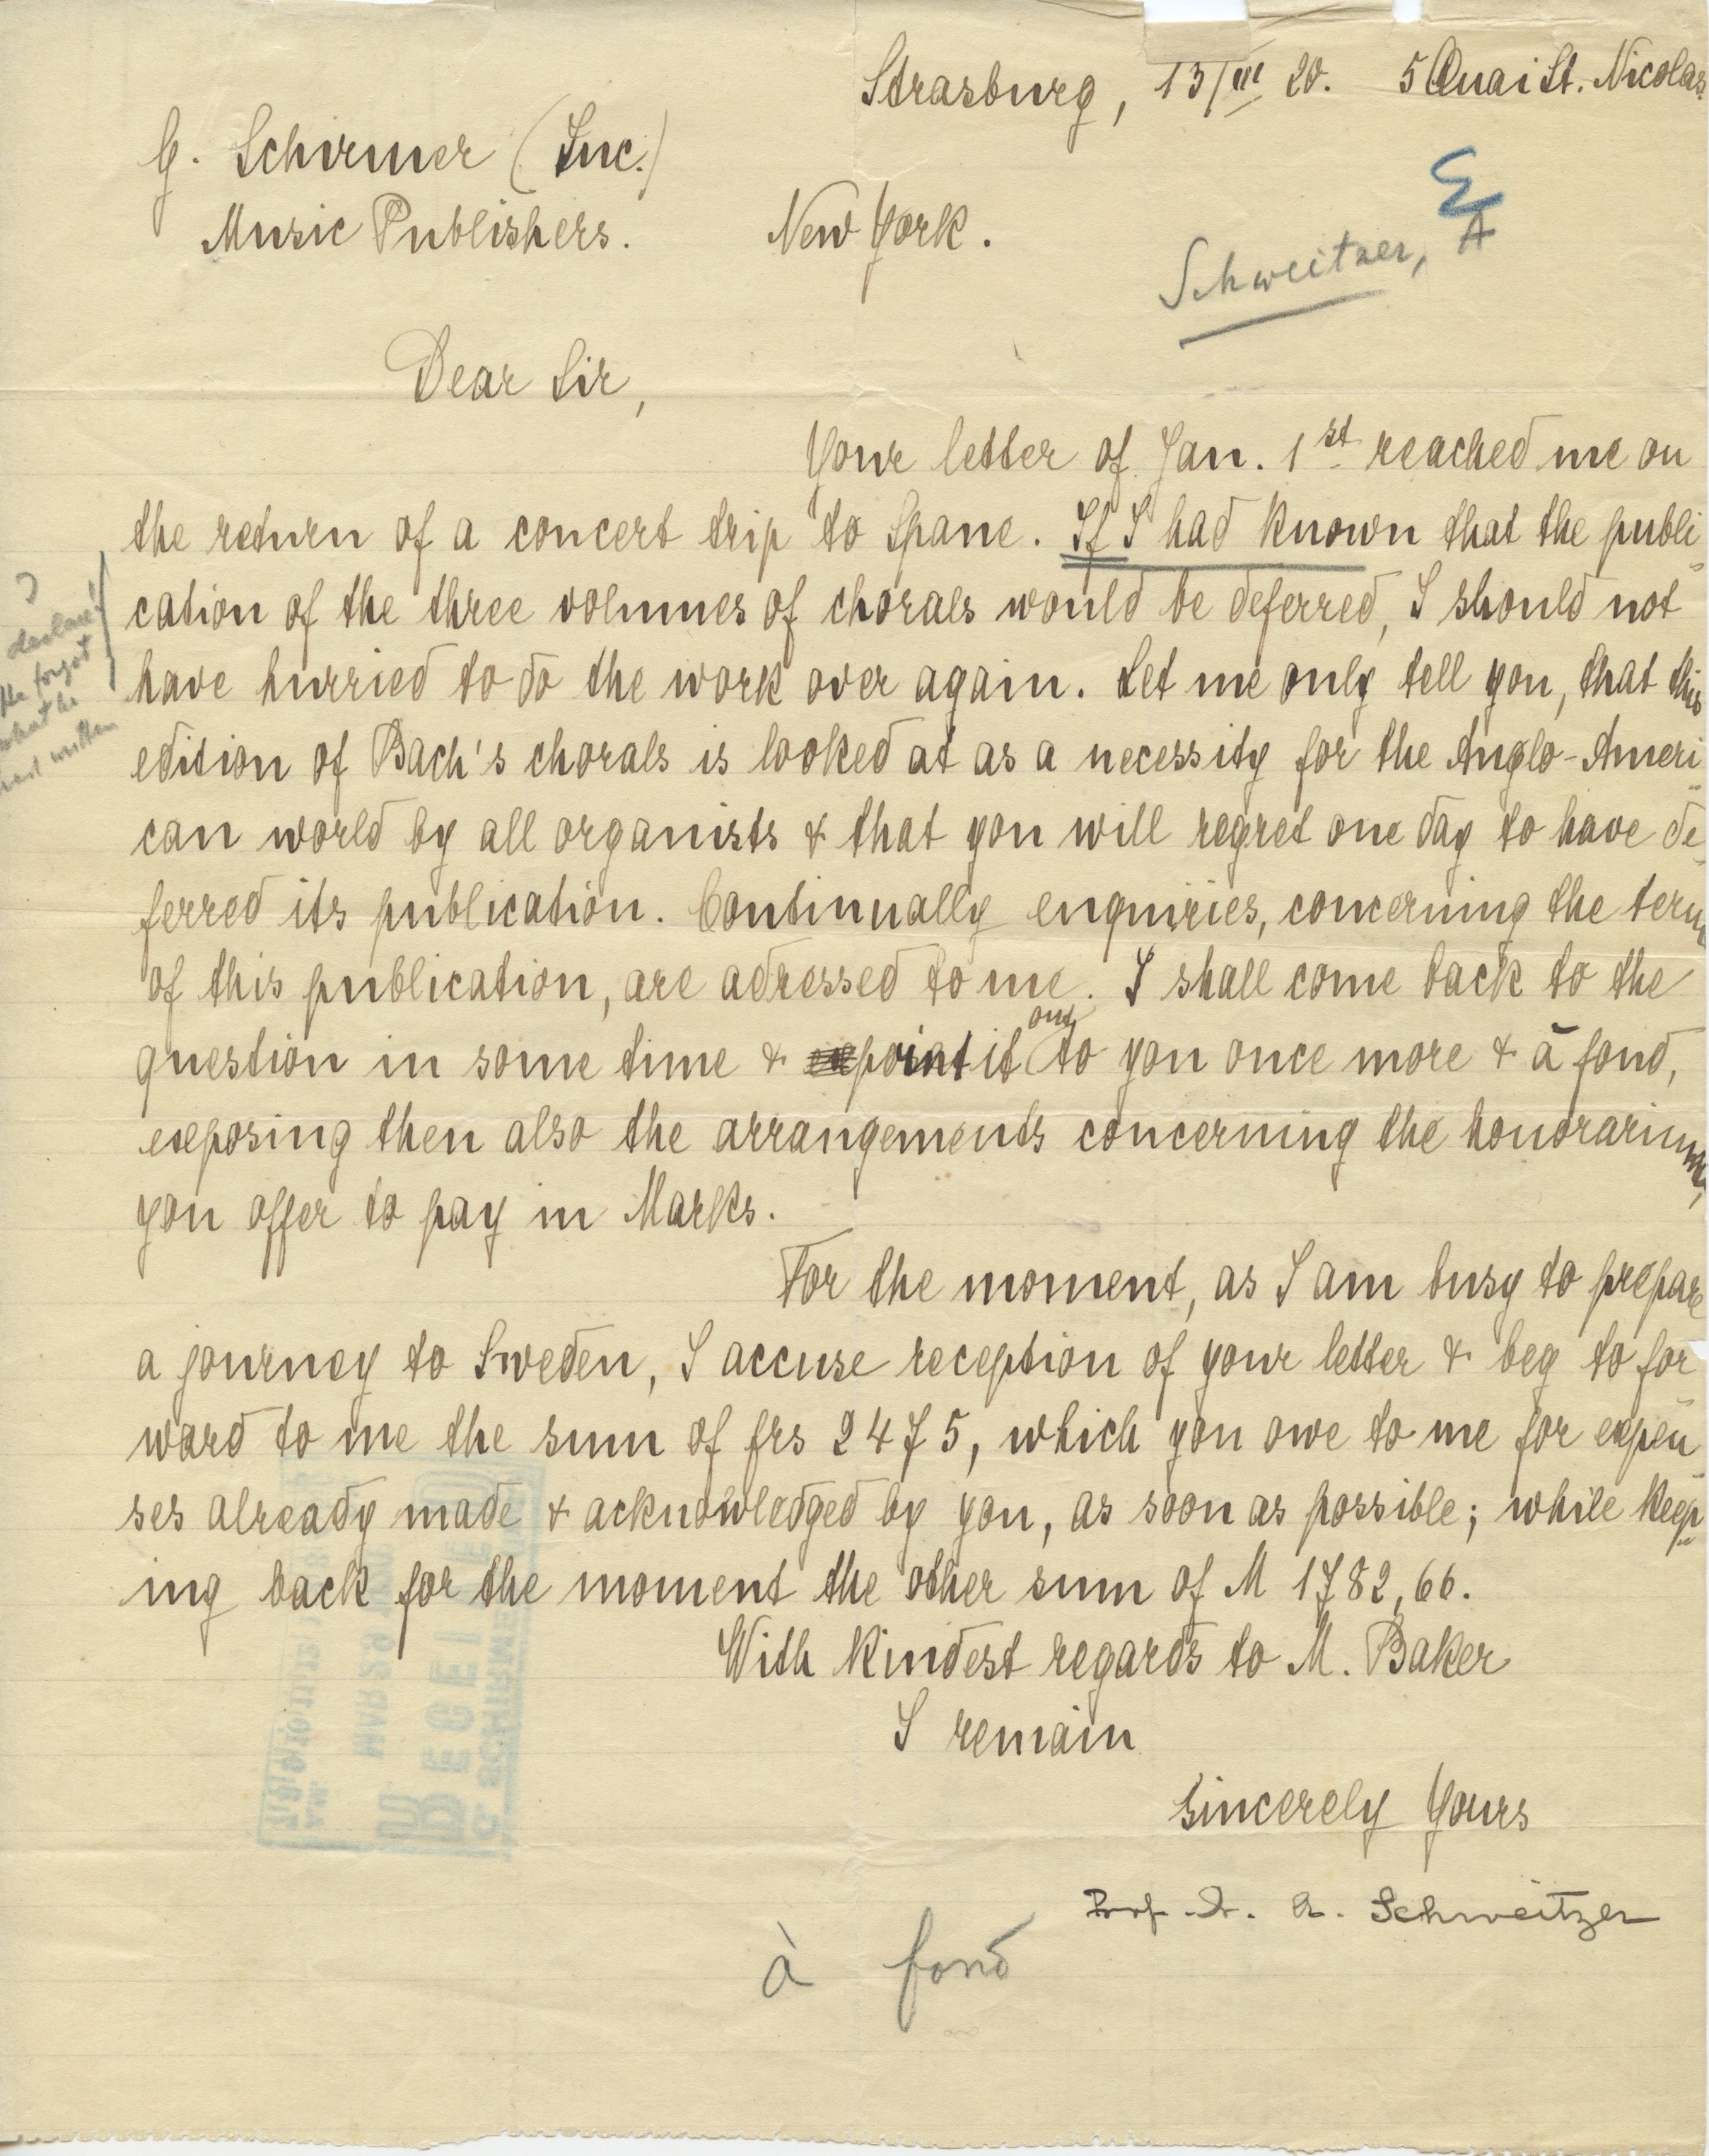 Strasburg, 13/III 20. 5 Quai St. Nicolas.
G. Schirmer (Inc.)
Music Publishers. New York.
Schweitzer, A
Dear Sir,
Your letter of Jan. 1st reached me on
the return of a concert trip to Spane. If I had known that the publi-
cation of the three volumes of chorals would be deferred, I should not
have hurried to do the work over again. Let me only tell you, that this
edition of Bach's chorals is looked at as a necessity for the Anglo-Ameri-
can world by all organists & that you will regret one day to have de-
ferred its publication. Continually enquiries, concerning the term
of this publication, are adressed to me. I shall come back to the
question in some time & point it out to you once more & à fond,
exposing then also the arrangements concerning the honorarium,
you offer to pay in Marks.
For the moment, as I am busy to prepare
a journey to Sweden, I accuse reception of your letter & beg to for-
ward to me the sum of frs 2475, which you owe to me for expen-
ses already made & acknowledged by you, as soon as possible; while keep-
ing back for the moment the other sum of M 1782,66.
With kindest regards to M. Baker
I remain
Sincerely Yours
Prof. Dr. A. Schweitzer
à fond
?
He forgot
what he
had written
G. SCHIRMER
RECEIVED
MAR 29